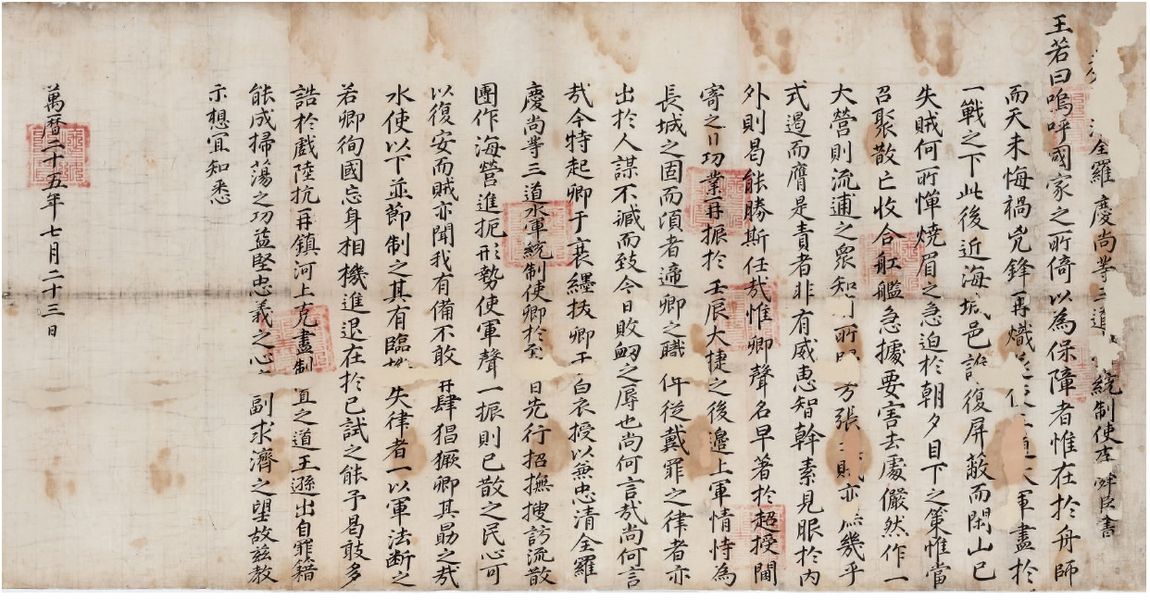 全羅慶尚等三道 統制使李舜臣書
王若曰嗚呼國家之所倚以為保障者惟在於舟師
而天未悔禍兇鋒再熾 大軍盡於
一戰之下此後近海城邑誰復屏蔽而閑山已
失賊何所憚燒眉之急迫於朝夕目下之策惟當
召聚散亡收合舡艦急據要害去處儼然作一
大營則流逋之衆知 所 方張 賊亦 幾乎
式遏而膺是責者非有威惠智幹素見服於内
外則曷能勝斯任哉惟卿聲名早著於超授閫
寄之日功業再振於壬辰大捷之後邊上軍情恃為
長城之固而頃者遞卿之職 俾從戴罪之律者亦
出於人謀不臧而致今日敗衂之辱也尚何言哉尚何言
哉今特起卿于衰絰拔卿于白衣授以兼忠清全羅
慶尚等三道水軍統制使卿於 日先行招撫搜訪流散
團作海營進扼形勢使軍聲一振則已散之民心可
以復安而賊亦聞我有備不敢再肆猖獗卿其勖之哉
水使以下並節制之其有臨 失律者一以軍法斷之
若卿徇國忘身相機進退在於已試之能予曷敢多
誥於戲陸抗再鎮河上克盡制 之道王遜出自罪籍
能成掃蕩之功益堅忠義之心 副求濟之望故茲教
示想宜知悉
萬曆二十五年七月二十三日